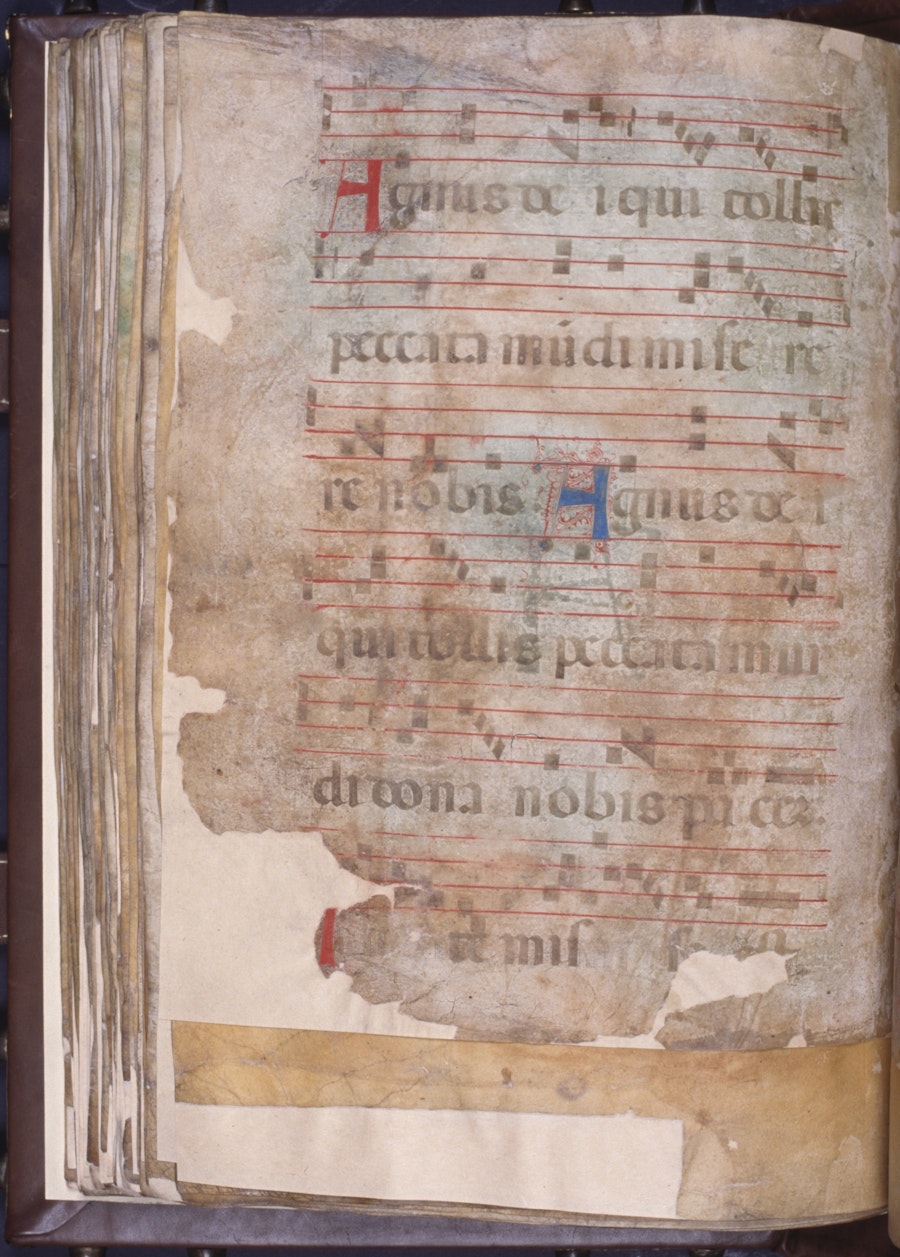 Agnus de i qui tollis
peccata mūdi mise re
re nobis Agnus de i
qui tollis peccata mun
di dona nobis pa cez.
I te mis